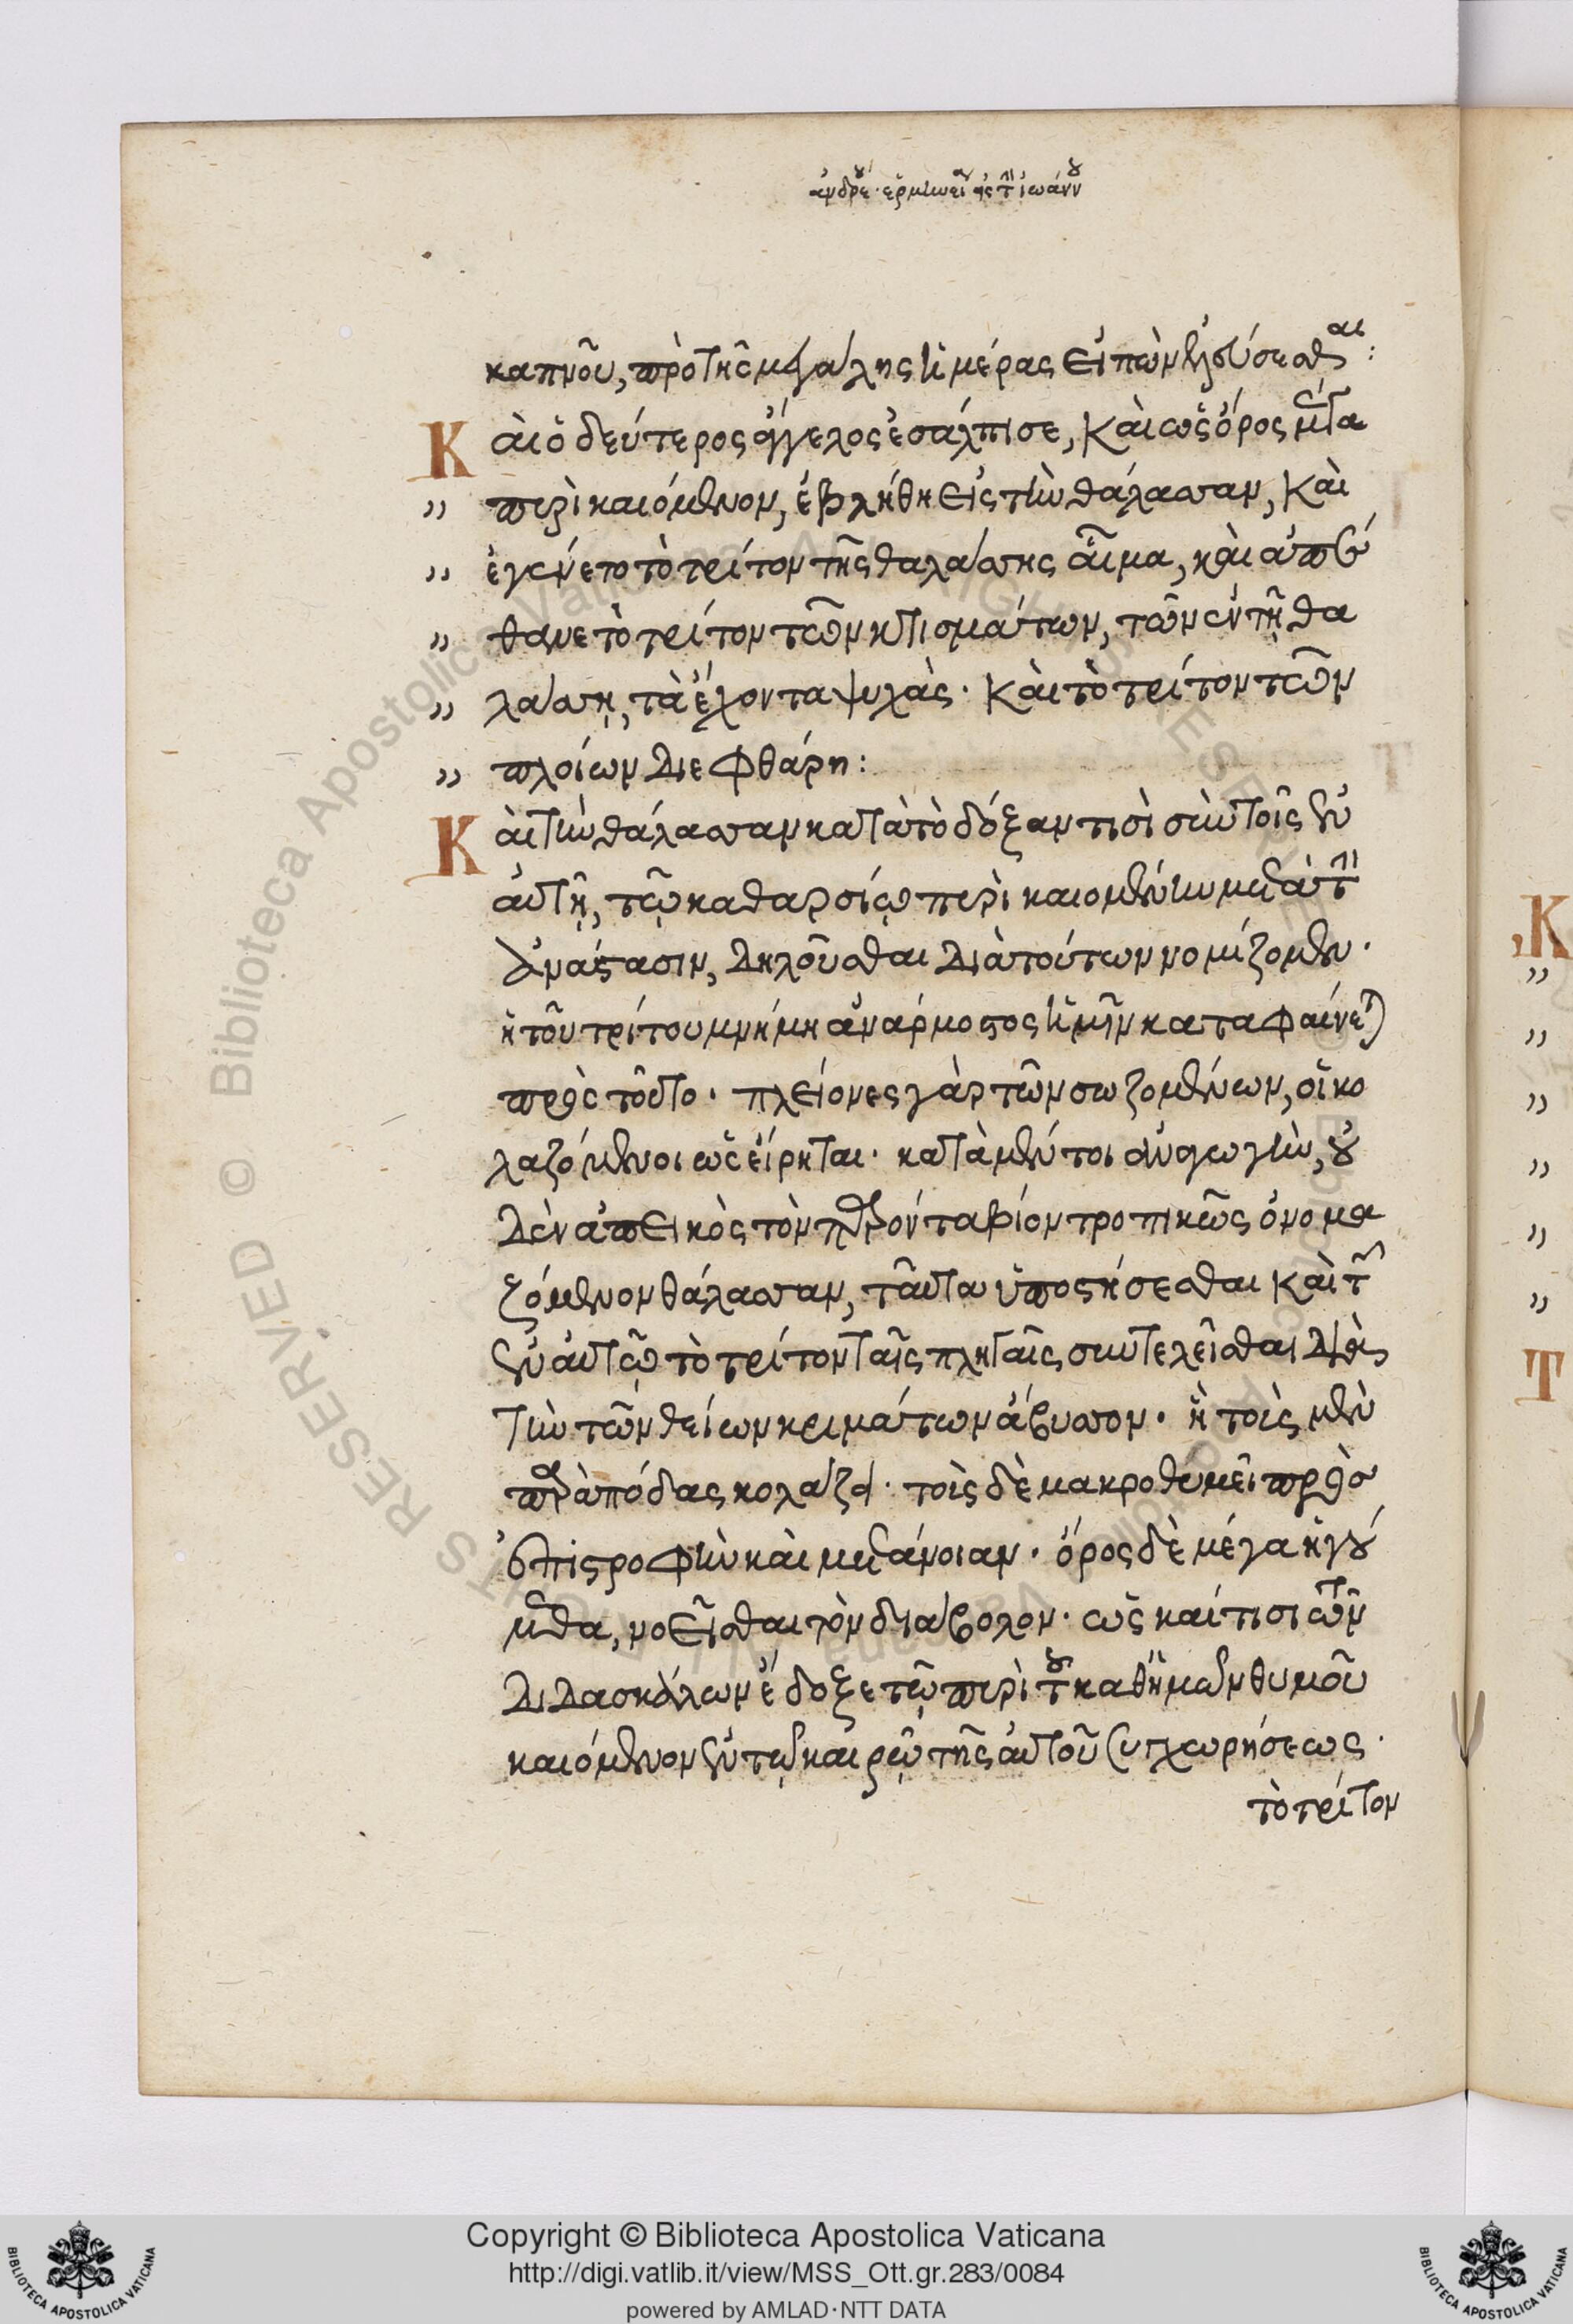 καπνοῦ, πρὸ τῆς μεγάλης ἡμέρας εἰπὼν ἐλεύσεσθαι:
Καὶ ὁ δεύτερος ἄγγελος ἐσάλπισε, Καὶ ὡς ὄρος μέγα
" πυρὶ καιόμενον, ἐβλήθη εἰς τὴν θάλασσαν, Καὶ
" ἐγένετο τὸ τρίτον τῆς θαλάσσης αἷμα, καὶ ἀπέ
" θανε τὸ τρίτον τῶν κτισμάτων, τῶν ἐν τῇ θα
" λάσσῃ, τὰ ἔχοντα ψυχὰς. Καὶ τὸ τρίτον τῶν
" πλοίων διεφθάρη:
Καὶ τὴν θάλασσαν κατὰ τὸ δόξαν τισὶ σὺν τοῖς ἐν
αὐτῇ, τῷ καθαρσίῳ πυρὶ καιομένην μετὰ τὴν
ἀνάστασιν, δηλοῦσθαι διὰ τούτων νομίζομεν.
ἡ τοῦ τρίτου μνήμη ἀνάρμοστος ἡμῖν καταφαίνεται
πρὸς τοῦτο. πλείονες γὰρ τῶν σωζομένων, οἱ κο
λαζόμενοι ὡς εἴρηται. κατὰ μέντοι ἀναγωγὴν, οὐ
δὲν ἀπεικὸς τὸν παρόντα βίον τροπικῶς ὀνομα
ζόμενον θάλασσαν, ταῦτα ὑποστήσεσθαι Καὶ τῶν
ἐν αὐτῷ τὸ τρίτον ταῖς πληγαῖς συντελεῖσθαι διὰ
τὴν τῶν θείων κριμάτων ἄβυσσον. ἢ τοὺς μὲν
παρὰ πόδας κολάζει. τοῖς δὲ μακροθυμεῖ πρὸς
ἐπιστροφὴν καὶ μετάνοιαν. ὄρος δὲ μέγα ἡγού
μεθα, νοεῖσθαι τὸν διάβολον. ὡς καί τισι τῶν
διδασκάλων ἔδοξε τῷ πυρὶ τοῦ καθ' ἡμῶν θυμοῦ
καιόμενον ἐν τῷ καιρῷ τῆς αὐτοῦ συγχωρήσεως.
τὸ τρίτον
Copyright © Biblioteca Apostolica Vaticana
http://digi.vatlib.it/view/MSS_Ott.gr.283/0084
powered by AMLAD·NTT DATA